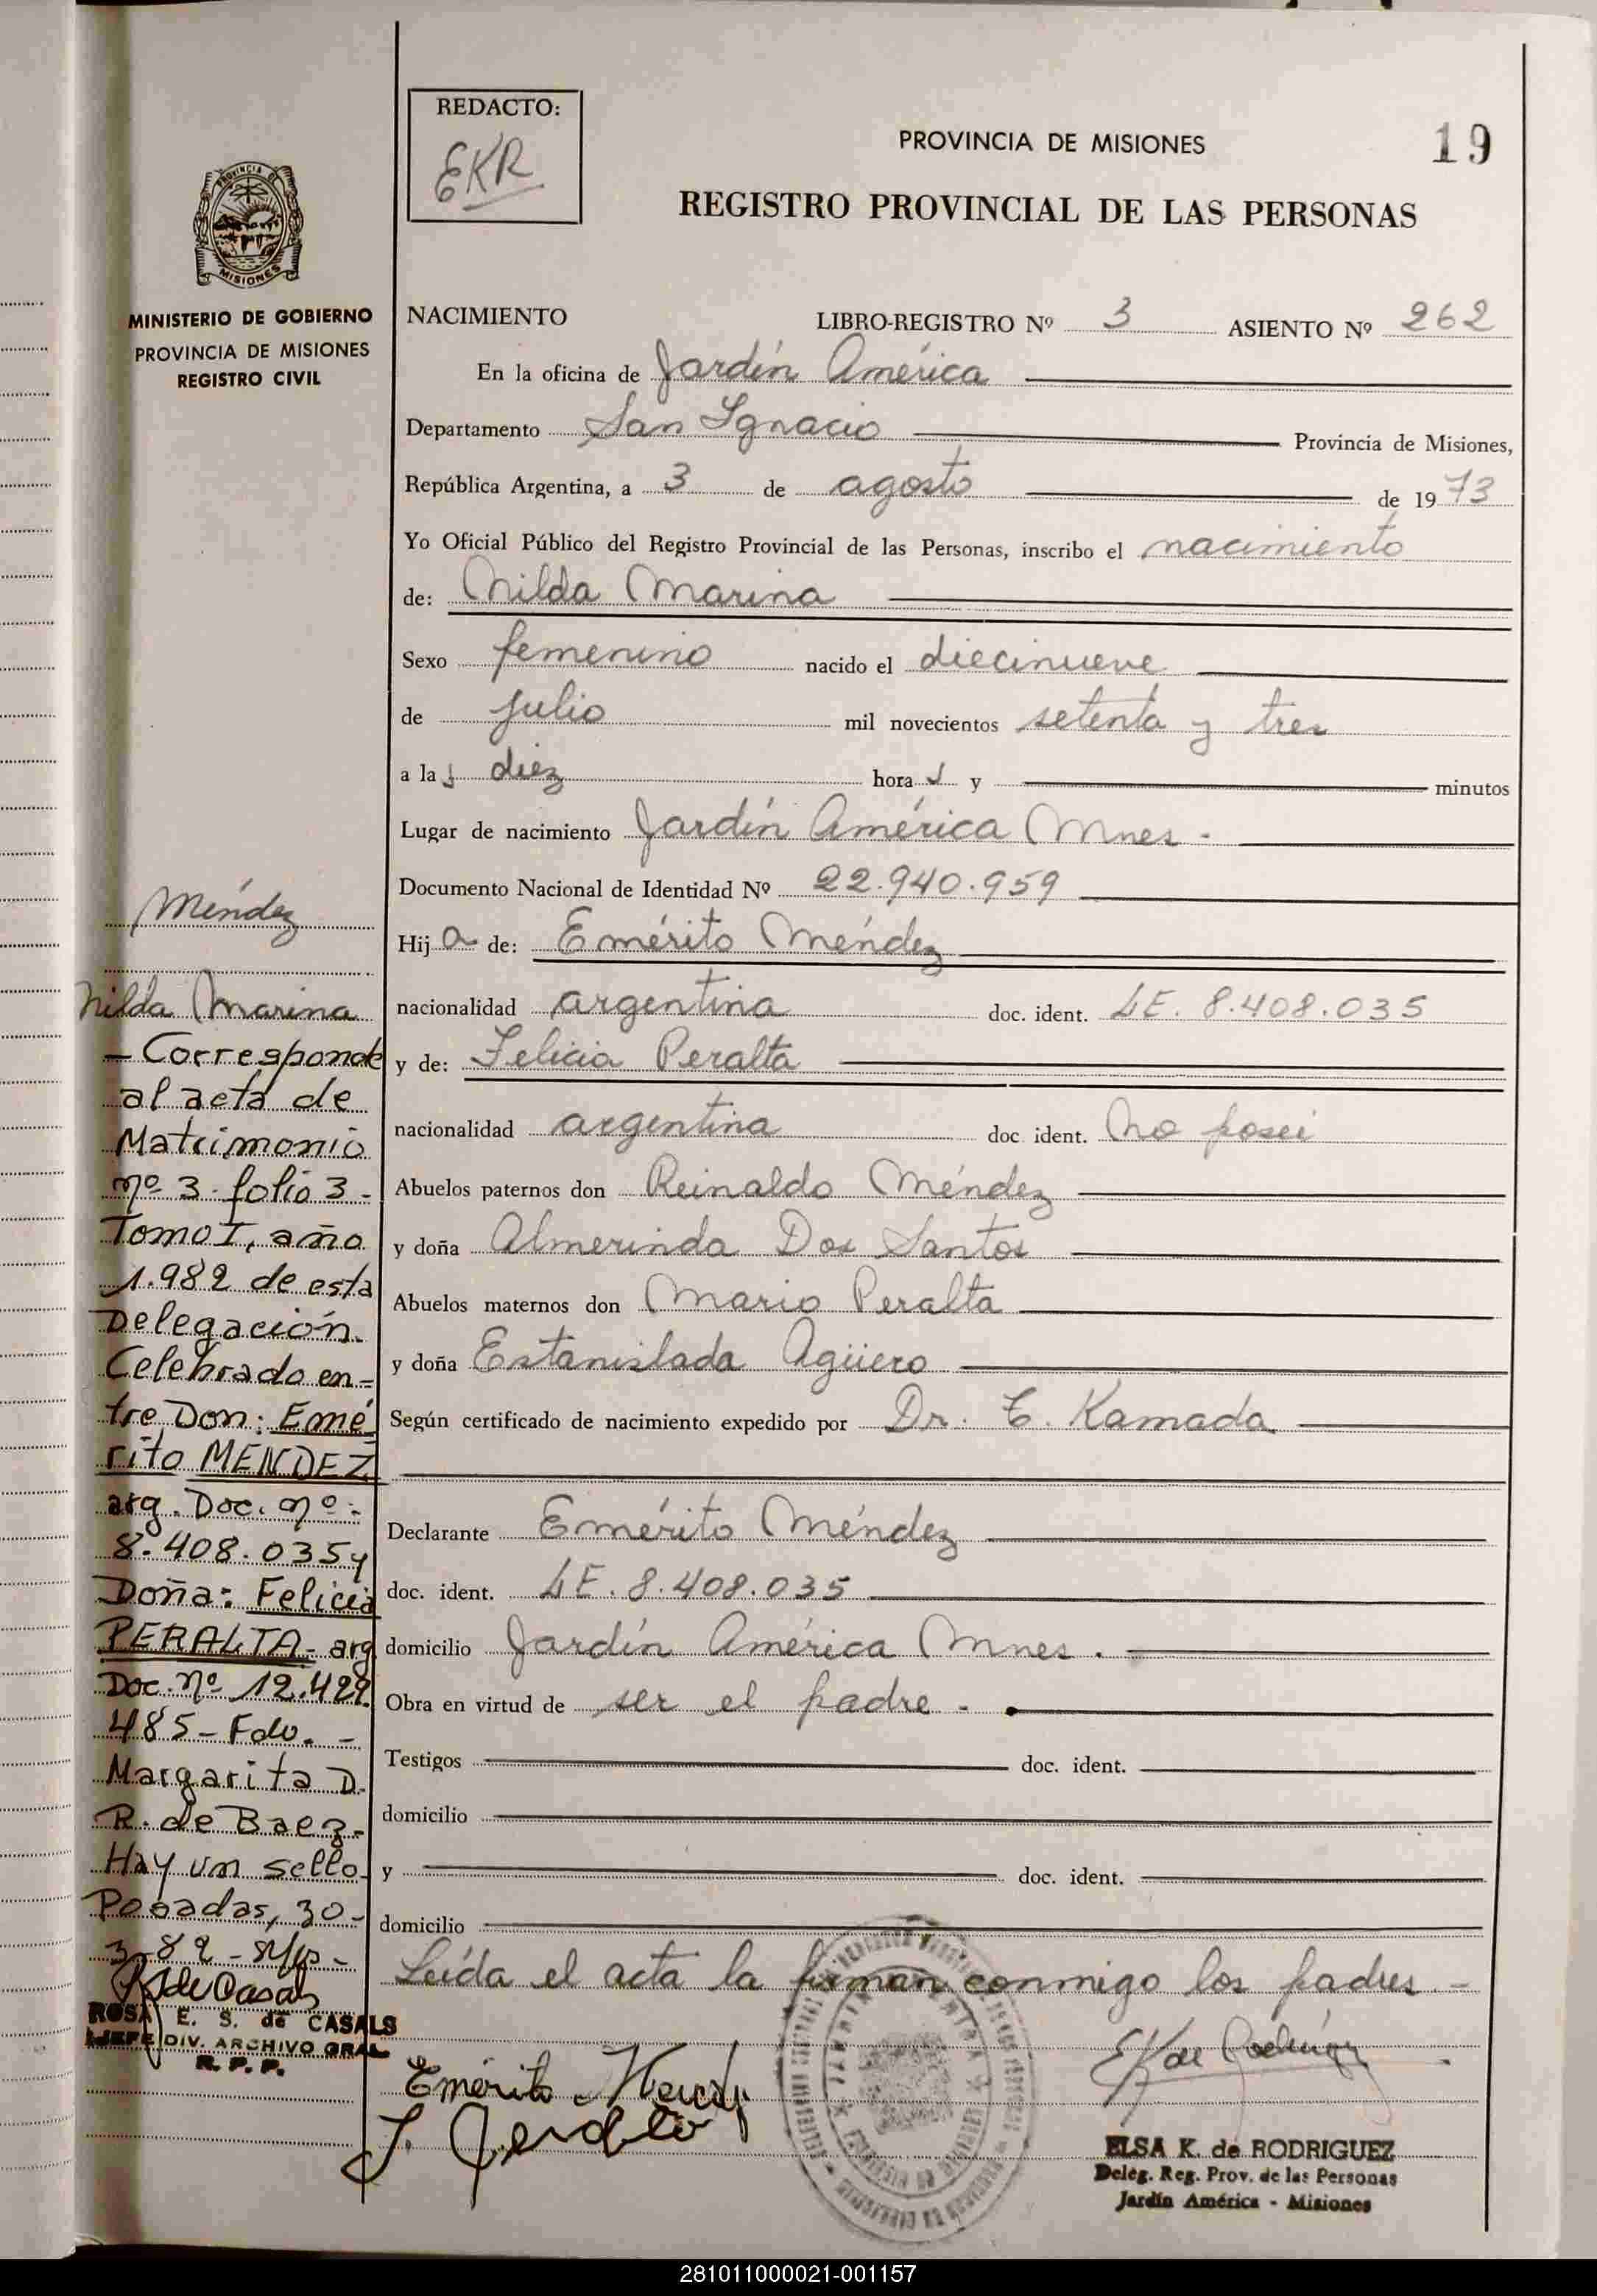 REDACTO:
EKR
PROVINCIA DE MISIONES
19
REGISTRO PROVINCIAL DE LAS PERSONAS
PROVINCIA DE
MISIONES
MINISTERIO DE GOBIERNO
PROVINCIA DE MISIONES
REGISTRO CIVIL
NACIMIENTO LIBRO-REGISTRO Nº 3 ASIENTO Nº 262
En la oficina de Jardín América
Departamento San Ignacio Provincia de Misiones,
República Argentina, a 3 de agosto de 1973
Yo Oficial Público del Registro Provincial de las Personas, inscribo el nacimiento
de: Nilda Marina
Sexo femenino nacido el diecinueve
de julio mil novecientos setenta y tres
a las diez horas y minutos
Lugar de nacimiento Jardín América Mnes -
Documento Nacional de Identidad Nº 22.940.959
Hija de: Emérito Méndez
nacionalidad argentina doc. ident. LE. 8.408.035
y de: Felicia Peralta
nacionalidad argentina doc ident. No poseé
Abuelos paternos don Reinaldo Méndez
y doña Almerinda Dos Santos
Abuelos maternos don Mario Peralta
y doña Estanislada Agüero
Según certificado de nacimiento expedido por Dr. T. Kamada
Declarante Emérito Méndez
doc. ident. LE. 8.408.035
domicilio Jardín América Mnes.
Obra en virtud de ser el padre -
Testigos doc. ident.
domicilio
y doc. ident.
domicilio
Leída el acta la firman conmigo los padres -
Emérito Mendez
F. Peralta
E K de Rodríguez
ELSA K. de RODRIGUEZ
Deleg. Reg. Prov. de las Personas
Jardín América - Misiones
Méndez
Nilda Marina
- Corresponde
al acta de
Matrimonio
nº 3 folio 3 -
Tomo I, año
1.982 de esta
Delegación.
Celebrado en=
tre Don: Emé
rito MENDEZ
arg. Doc. nº:
8.408.035 y
Doña: Felicia
PERALTA - arg
Doc. Nº 12.429.
485 - Fdo. -
Margarita D.
R. de Baez -
Hay un sello.
Posadas, 30-
3-82 -
R S de Casals
ROSA E. S. de CASALS
JEFE DIV. ARCHIVO GRAL
R. P. P.
281011000021-001157